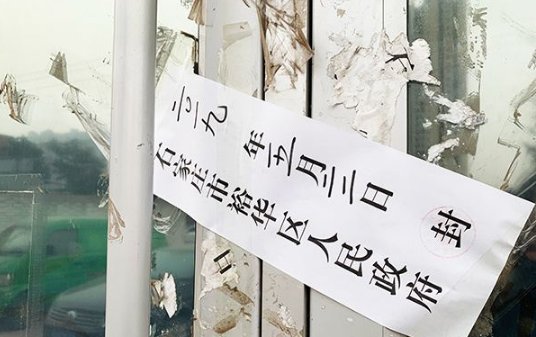 二〇一九 年五月三日
石家庄市裕华区人民政府
封